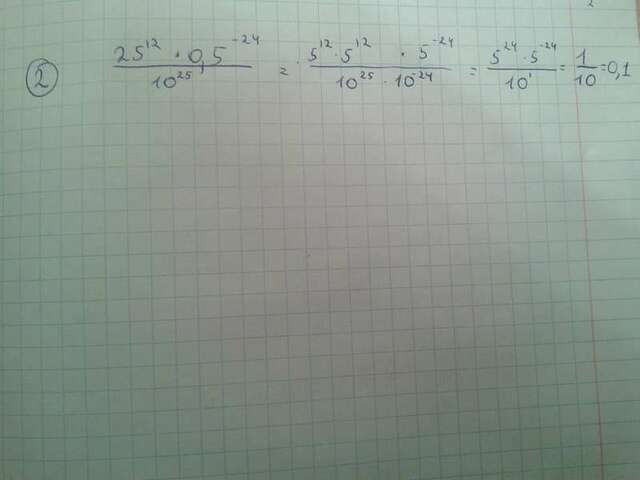 ② \frac{25^{12} \cdot 0,5^{-24}}{10^{25}} = \frac{5^{12} \cdot 5^{12} \cdot 5^{-24}}{10^{25} \cdot 10^{-24}} = \frac{5^{24} \cdot 5^{-24}}{10^{1}} = \frac{1}{10} = 0,1